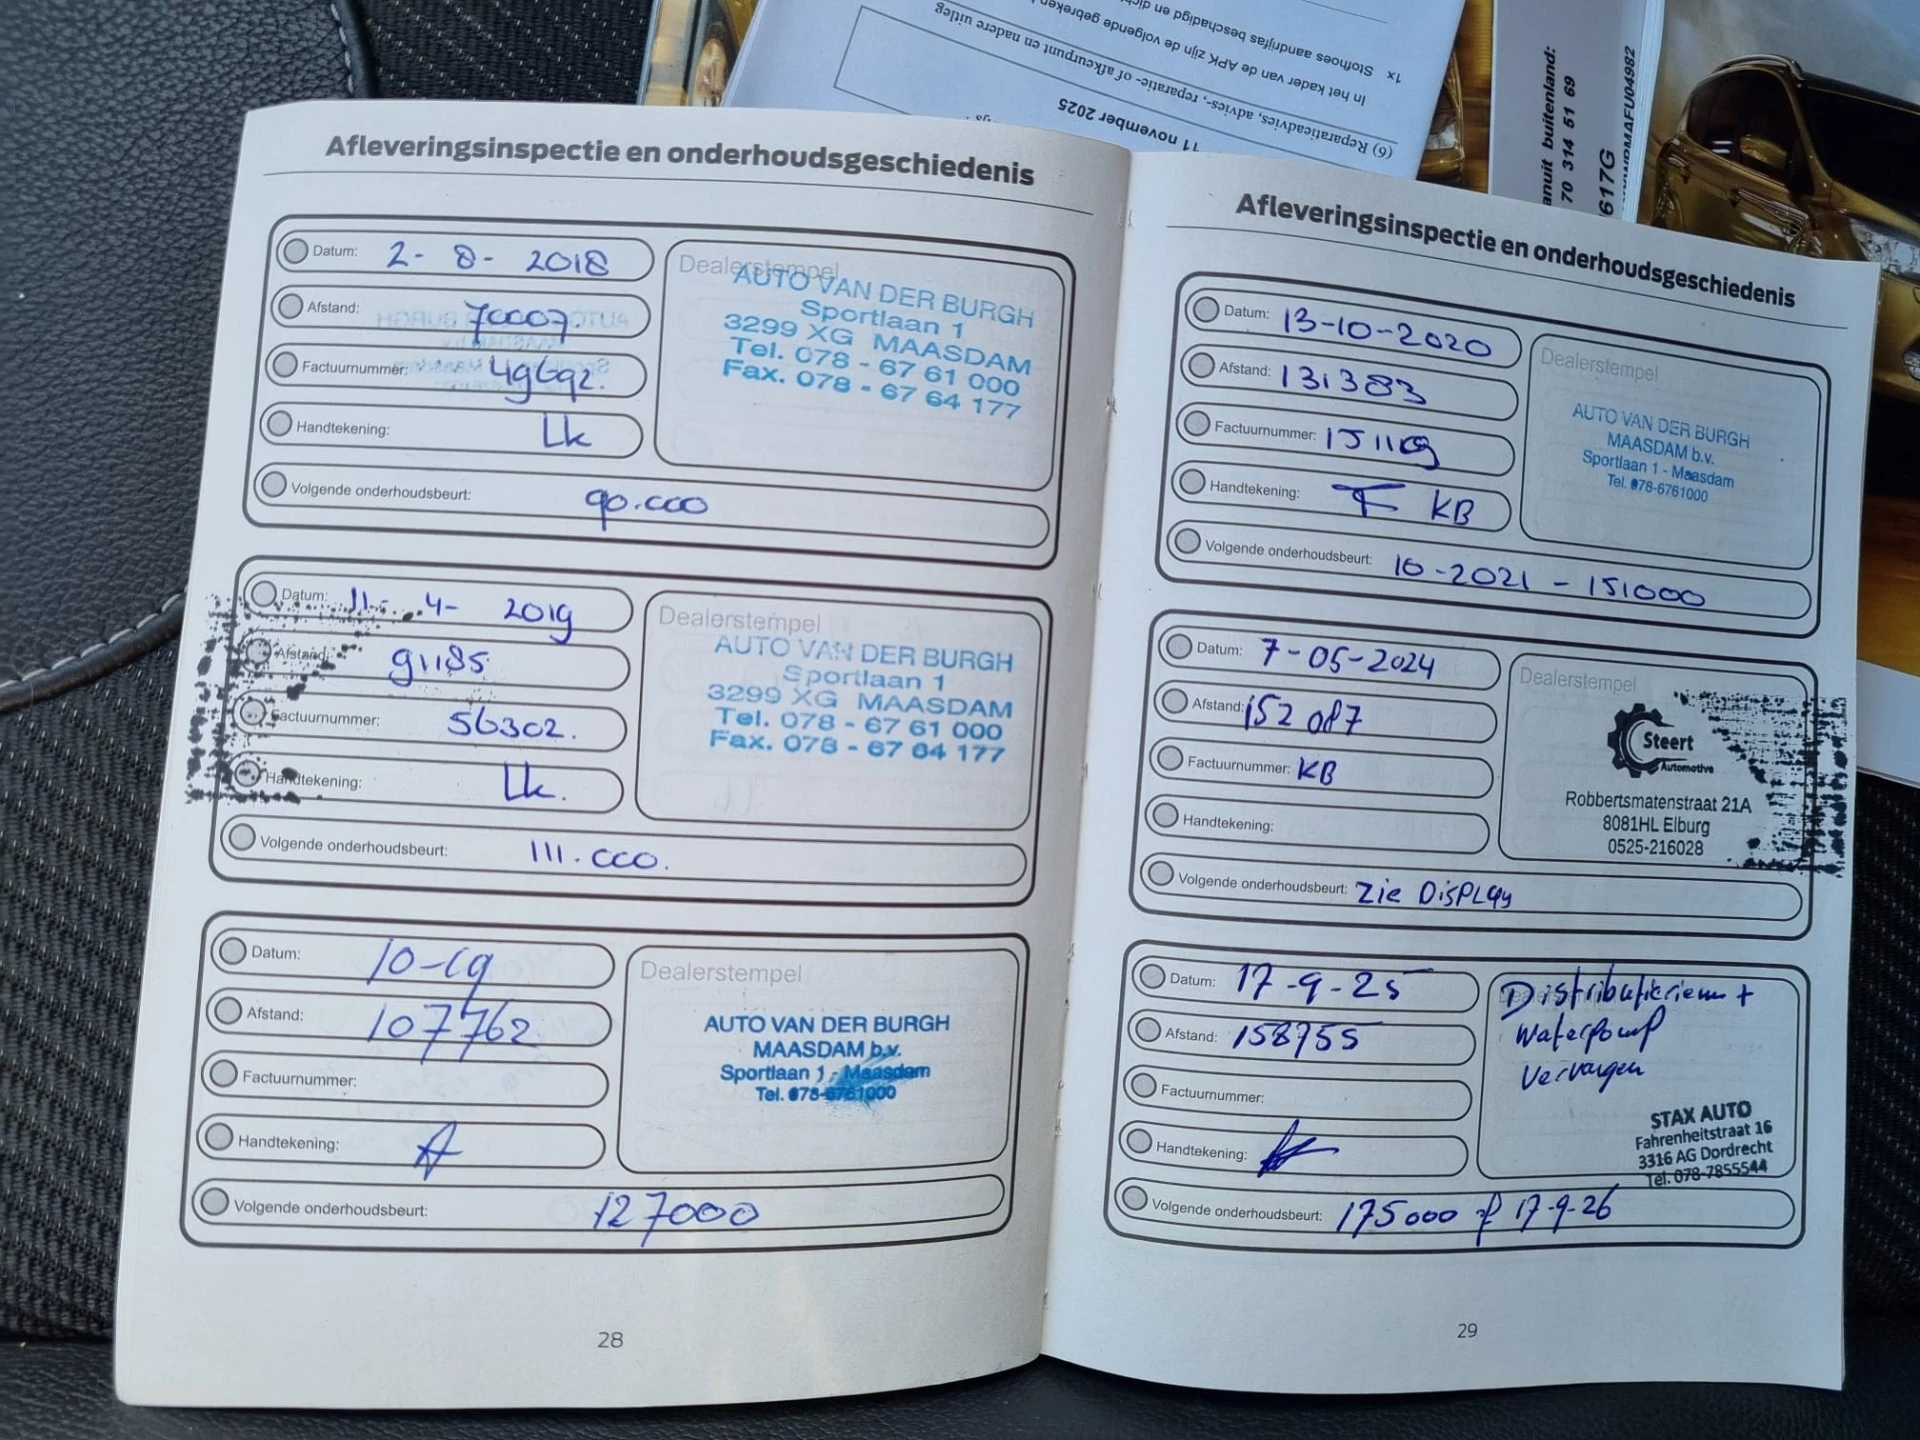 1x Stofhoes aandrijfas beschadigd en dicht
In het kader van de APK zijn de volgende gebreken
(6) Reparatieadvies, advies-, reparatie- of afkeurpunt en nadere uitleg
11 november 2025
anuit buitenland:
70 314 51 69
617G
Afleveringsinspectie en onderhoudsgeschiedenis
Datum: 2-8-2018
Afstand: 70007.
Factuurnummer: 49692.
Handtekening: Lk
Volgende onderhoudsbeurt: 90.000
Dealerstempel
AUTO VAN DER BURGH
Sportlaan 1
3299 XG MAASDAM
Tel. 078 - 67 61 000
Fax. 078 - 67 64 177
Datum: 11-4-2019
Afstand: 91185
Factuurnummer: 56302.
Handtekening: Lk.
Volgende onderhoudsbeurt: 111.000.
Dealerstempel
AUTO VAN DER BURGH
Sportlaan 1
3299 XG MAASDAM
Tel. 078 - 67 61 000
Fax. 078 - 67 64 177
Datum: 10-19
Afstand: 107762
Factuurnummer:
Handtekening:
Volgende onderhoudsbeurt: 127000
Dealerstempel
AUTO VAN DER BURGH
MAASDAM b.v.
Sportlaan 1 - Maasdam
Tel. 078-6761000
28
Afleveringsinspectie en onderhoudsgeschiedenis
Datum: 13-10-2020
Afstand: 131383
Factuurnummer: 151109
Handtekening: KB
Volgende onderhoudsbeurt: 10-2021 - 151000
Dealerstempel
AUTO VAN DER BURGH
MAASDAM b.v.
Sportlaan 1 - Maasdam
Tel. 078-6761000
Datum: 7-05-2024
Afstand: 152087
Factuurnummer: KB
Handtekening:
Volgende onderhoudsbeurt: Zie DisPLay
Dealerstempel
Steert
Automotive
Robbertsmatenstraat 21A
8081HL Elburg
0525-216028
Datum: 17-9-25
Afstand: 158755
Factuurnummer:
Handtekening:
Volgende onderhoudsbeurt: 175000 of 17-9-26
Distributieriem +
Waterpomp
Vervangen
STAX AUTO
Fahrenheitstraat 16
3316 AG Dordrecht
Tel. 078-7855544
29